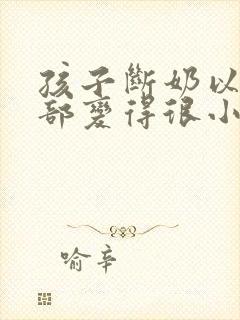 孩子斷奶以
部變得很小
喻辛